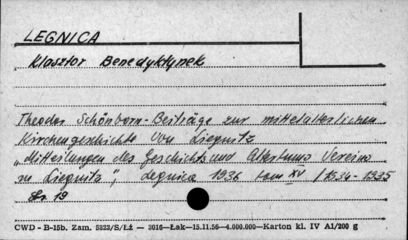 LEGNICA
Klasztor Benedyktynek
Theodor Schönborn - Beiträge zur mittelalterlichen
Kirchengeschichte von Liegnitz
„Mitteilungen des Geschichts und Altertums Vereins
zu Liegnitz", Legnica 1936 tom XV /1934-1935
Str 19
CWD - B-15b. Zam. 5823/S/Łź — 3016—Łak—15.11.56—4.000.000—Karton kl. IV A1/200 g